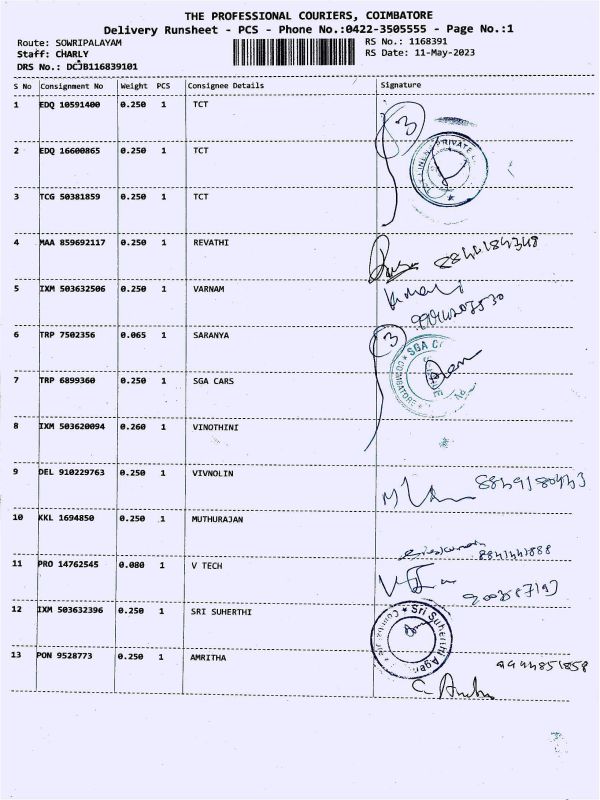 THE PROFESSIONAL COURIERS, COIMBATORE
Delivery Runsheet - PCS - Phone No.:0422-3505555 - Page No.:1
Route: SOWRIPALAYAM
RS No.: 1168391
Staff: CHARLY
RS Date: 11-May-2023
DRS No.: DCJB116839101
S No Consignment No Weight PCS Consignee Details Signature
1 EDQ 10591400 0.250 1 TCT
3
2 EDQ 16600865 0.250 1 TCT
PRIVATE
3 TCG 50381859 0.250 1 TCT
4 MAA 859692117 0.250 1 REVATHI
5 IXM 503632506 0.250 1 VARNAM
6 TRP 7502356 0.065 1 SARANYA
3
SGA
COIMBATORE
7 TRP 6899360 0.250 1 SGA CARS
8 IXM 503620094 0.260 1 VINOTHINI
9 DEL 910229763 0.250 1 VIVNOLIN
10 KKL 1694850 0.250 1 MUTHURAJAN
11 PRO 14762545 0.080 1 V TECH
12 IXM 503632396 0.250 1 SRI SUHERTHI
Sri Suherthi
13 PON 9528773 0.250 1 AMRITHA